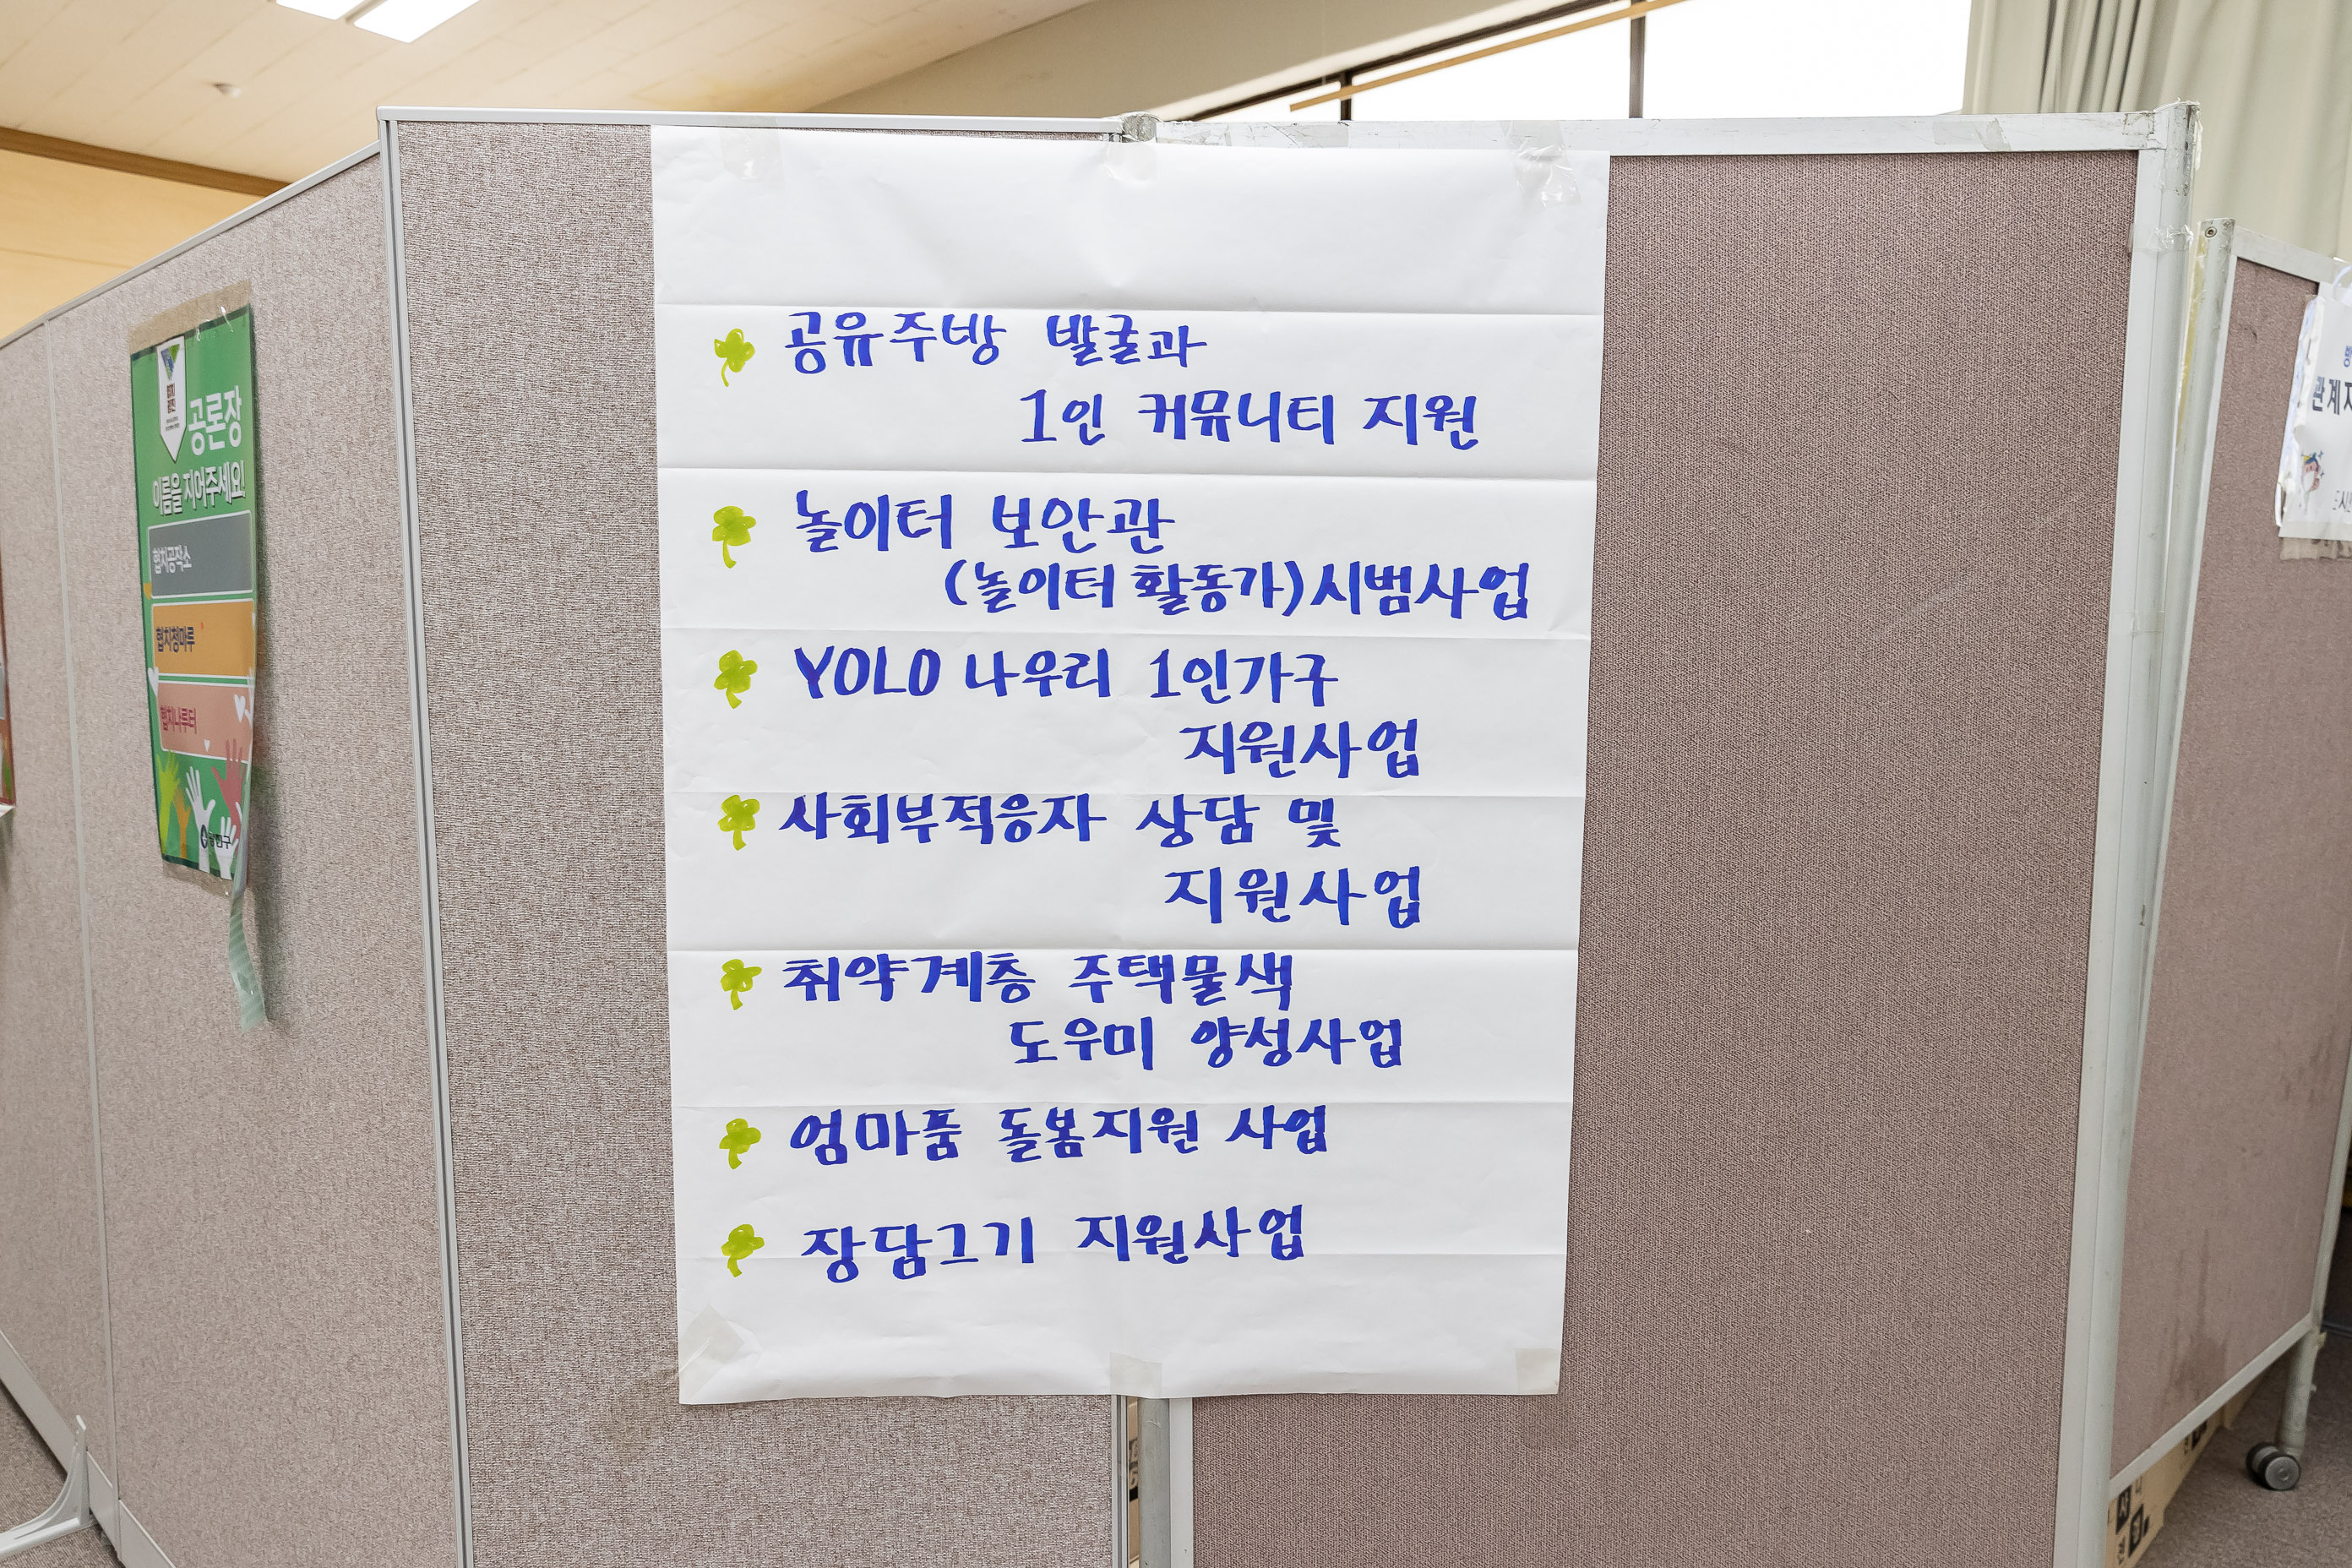 공유주방 발굴과
1인 커뮤니티 지원
놀이터 보안관
(놀이터 활동가)시범사업
YOLO 나우리 1인가구
지원사업
사회부적응자 상담 및
지원사업
취약계층 주택물색
도우미 양성사업
엄마품 돌봄지원 사업
장담그기 지원사업
공론장
이름을 지어주세요!
협치공작소
협치청마루
협치나루터